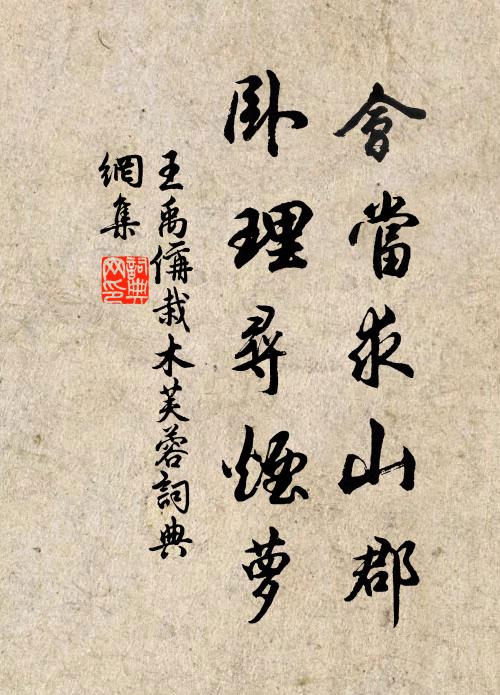 會當求山郡
臥理尋煙夢
王禹偁栽木芙蓉詞典
網集
詞典
网印